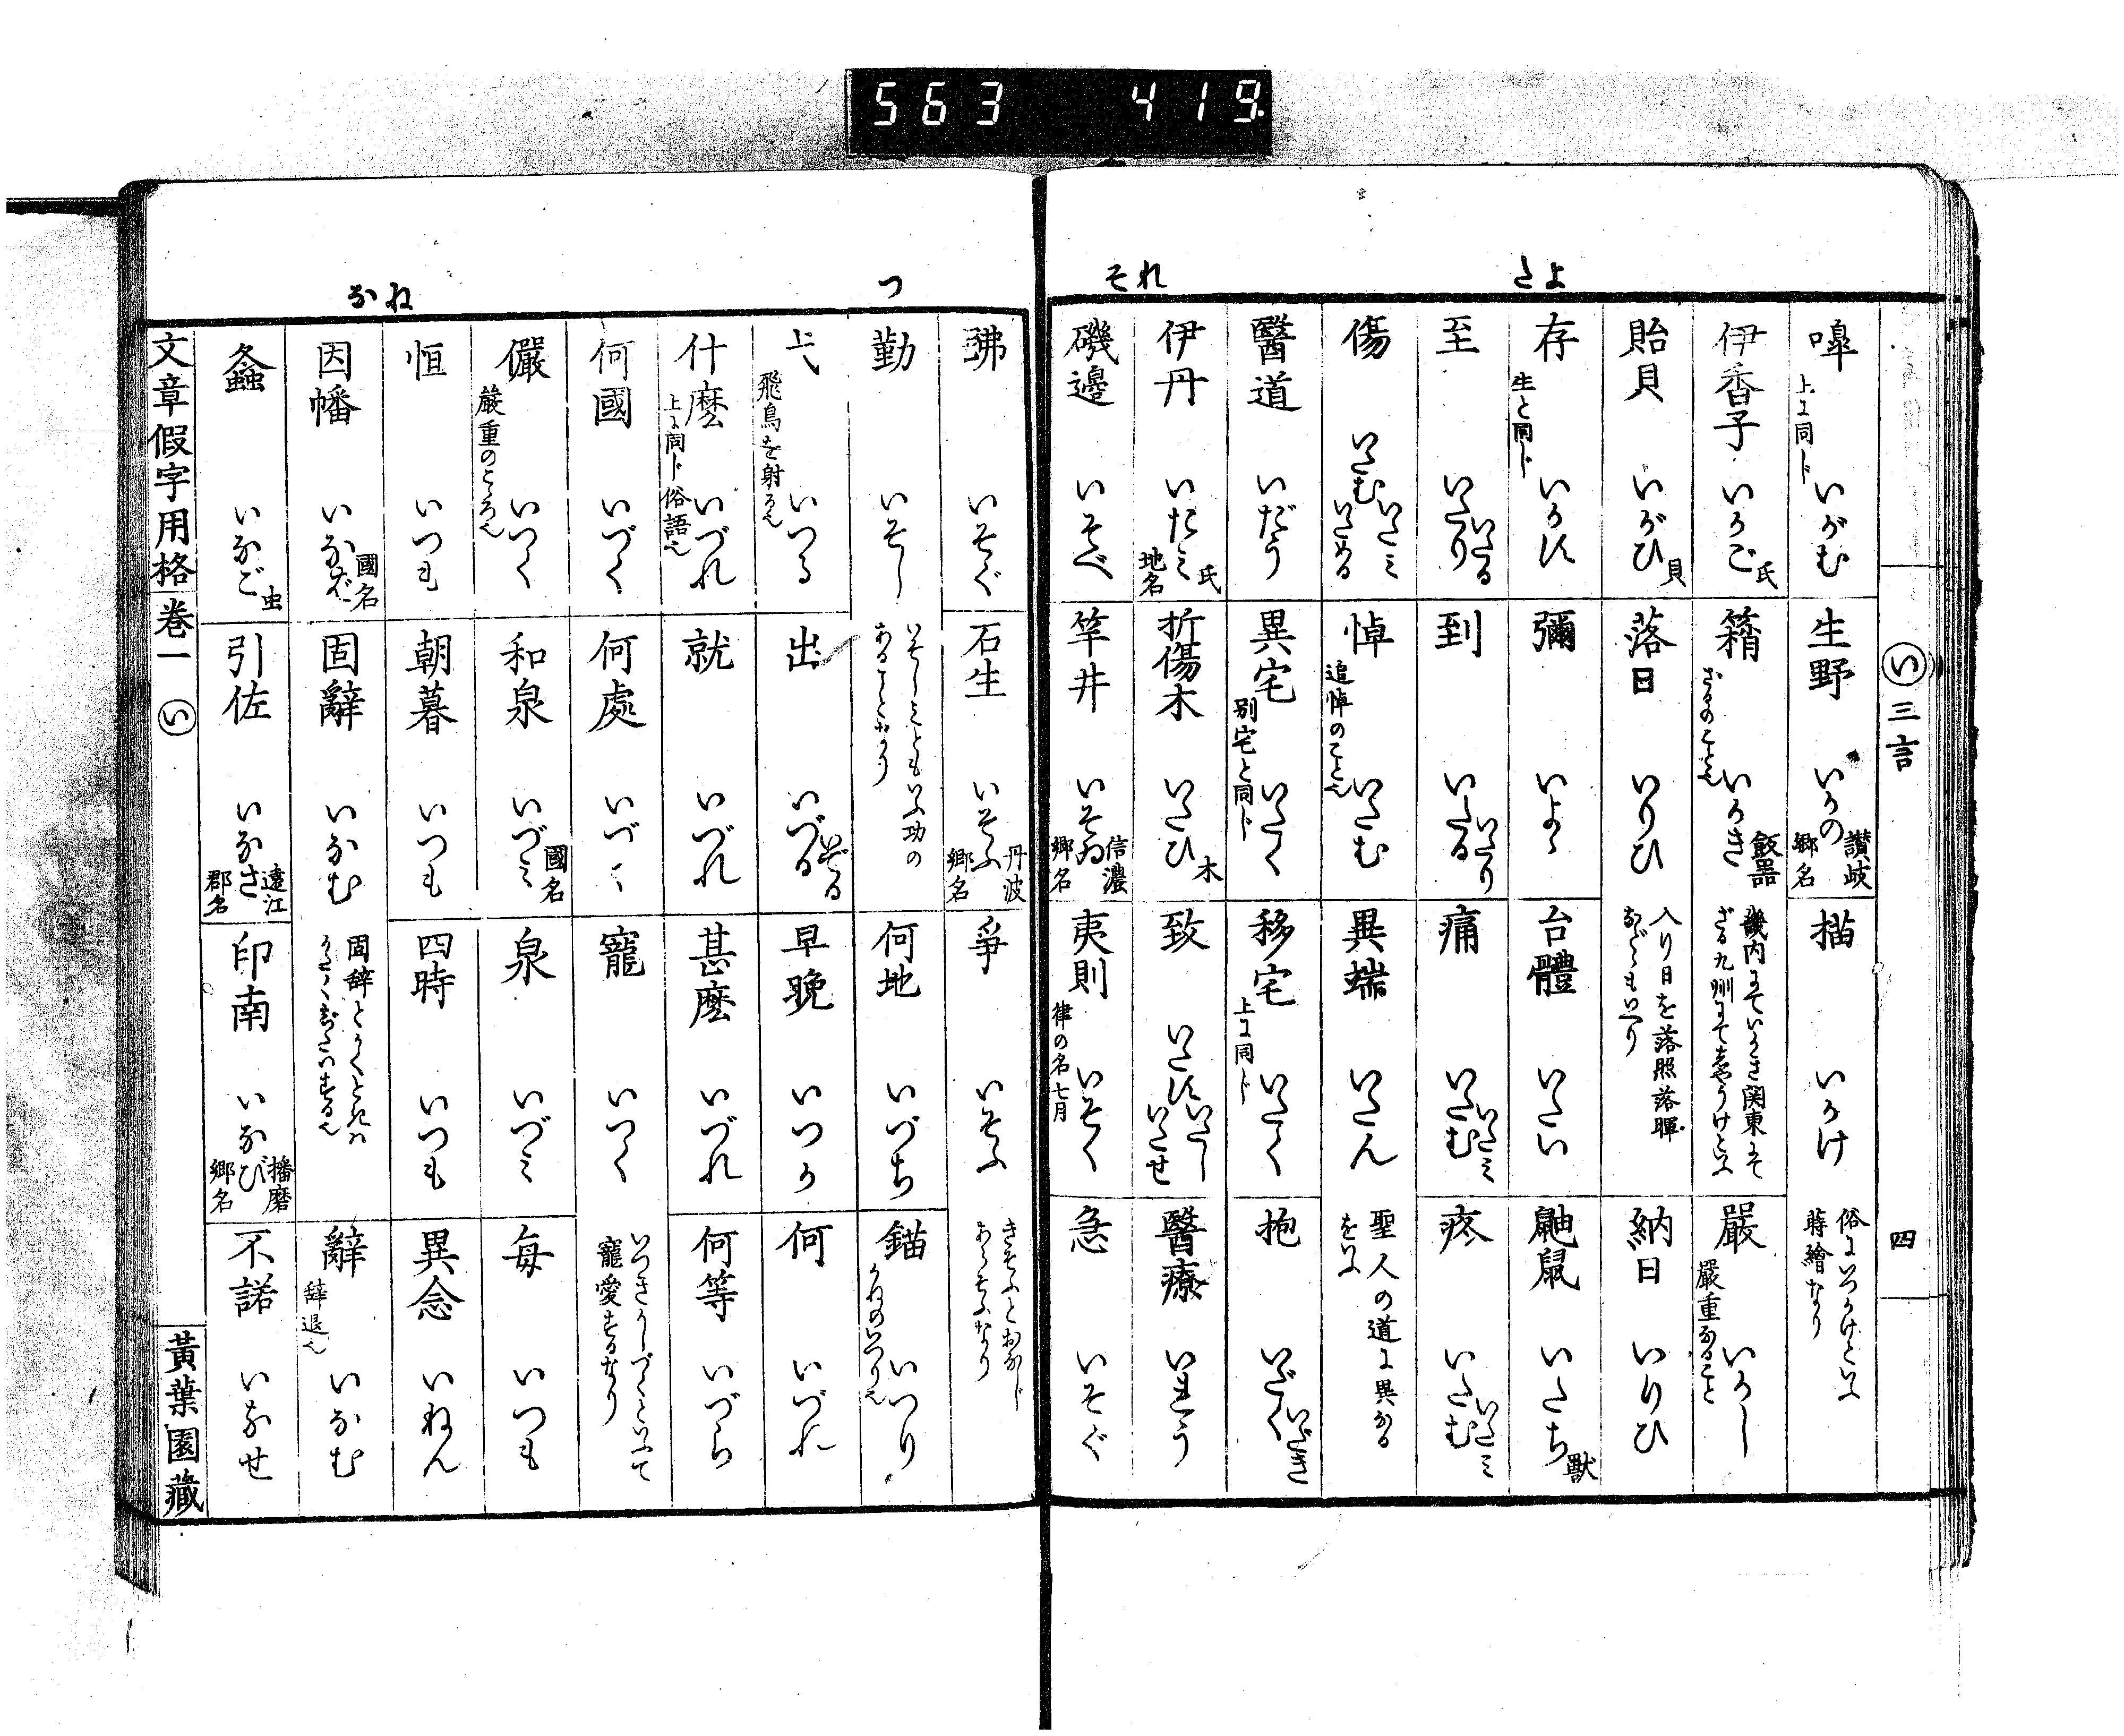 563 419
よた
れそ
い 三言 四
嘷 上に同じ いがむ
生野 いかの 讃岐郷名
描 いかけ 俗にいつかけといふ蒔繪なり
伊香子 いかご 氏
箱 ざるのこと也 いかき 飯器 畿内にていかき関東にてざる九州にてしやうけといふ
嚴 嚴重なること いかし
貽貝 いがひ 貝
落日 いりひ 入り日を落照落暉などもいへり
納日 いりひ
存 生と同じ いかす
彌 いよ〻
台體 いたい
鼬鼠 いたち 獣
至 いたり いたる
到 いたる いたり
痛 いたむ いたミ
疼 いたむ いたミ
傷 いたむ いたミ いためる
悼 追悼のこと也 いたむ
異端 いたん 聖人の道に異なるをいふ
醫道 いだう
異宅 別宅と同じ いたく
移宅 上に同じ いたく
抱 いだく いだき
伊丹 いたミ 氏 地名
折傷木 いたひ 木
致 いたす いたし いたせ
醫療 いれう
磯邊 いそべ
竿井 いそゐ 信濃郷名
夷則 律の名七月 いそく
急 いそぐ
つ
ねな
弗 いそぐ
石生 いそふ 丹波郷名
爭 いそふ きそふとおなじあらそふなり
勤 いそし いそしミともいふ功のあることなり
何地 いづち
錨 かねのいかり也 いつり
弋 飛鳥を射る也 いつる
出 いづる いでる
早晚 いつか
何 いづれ
什麽 上に同じ俗語也 いづれ
就 いづれ
甚麽 いづれ
何等 いづら
何國 いづく
何處 いづく
寵 いつく いつきかしづくといふて寵愛するなり
儼 嚴重のこゝろ也 いつく
和泉 いづミ 國名
泉 いづミ
每 いつも
恒 いつも
朝暮 いつも
四時 いつも
異念 いねん
因幡 いなば 國名
固辭 いなむ 固辞とかくときハかたくじたいする也
辭 辞退也 いなむ
螽 いなご 虫
引佐 いなさ 遠江郡名
印南 いなび 播磨郷名
不諾 いなせ
文章假字用格 巻一 い 黃葉園藏